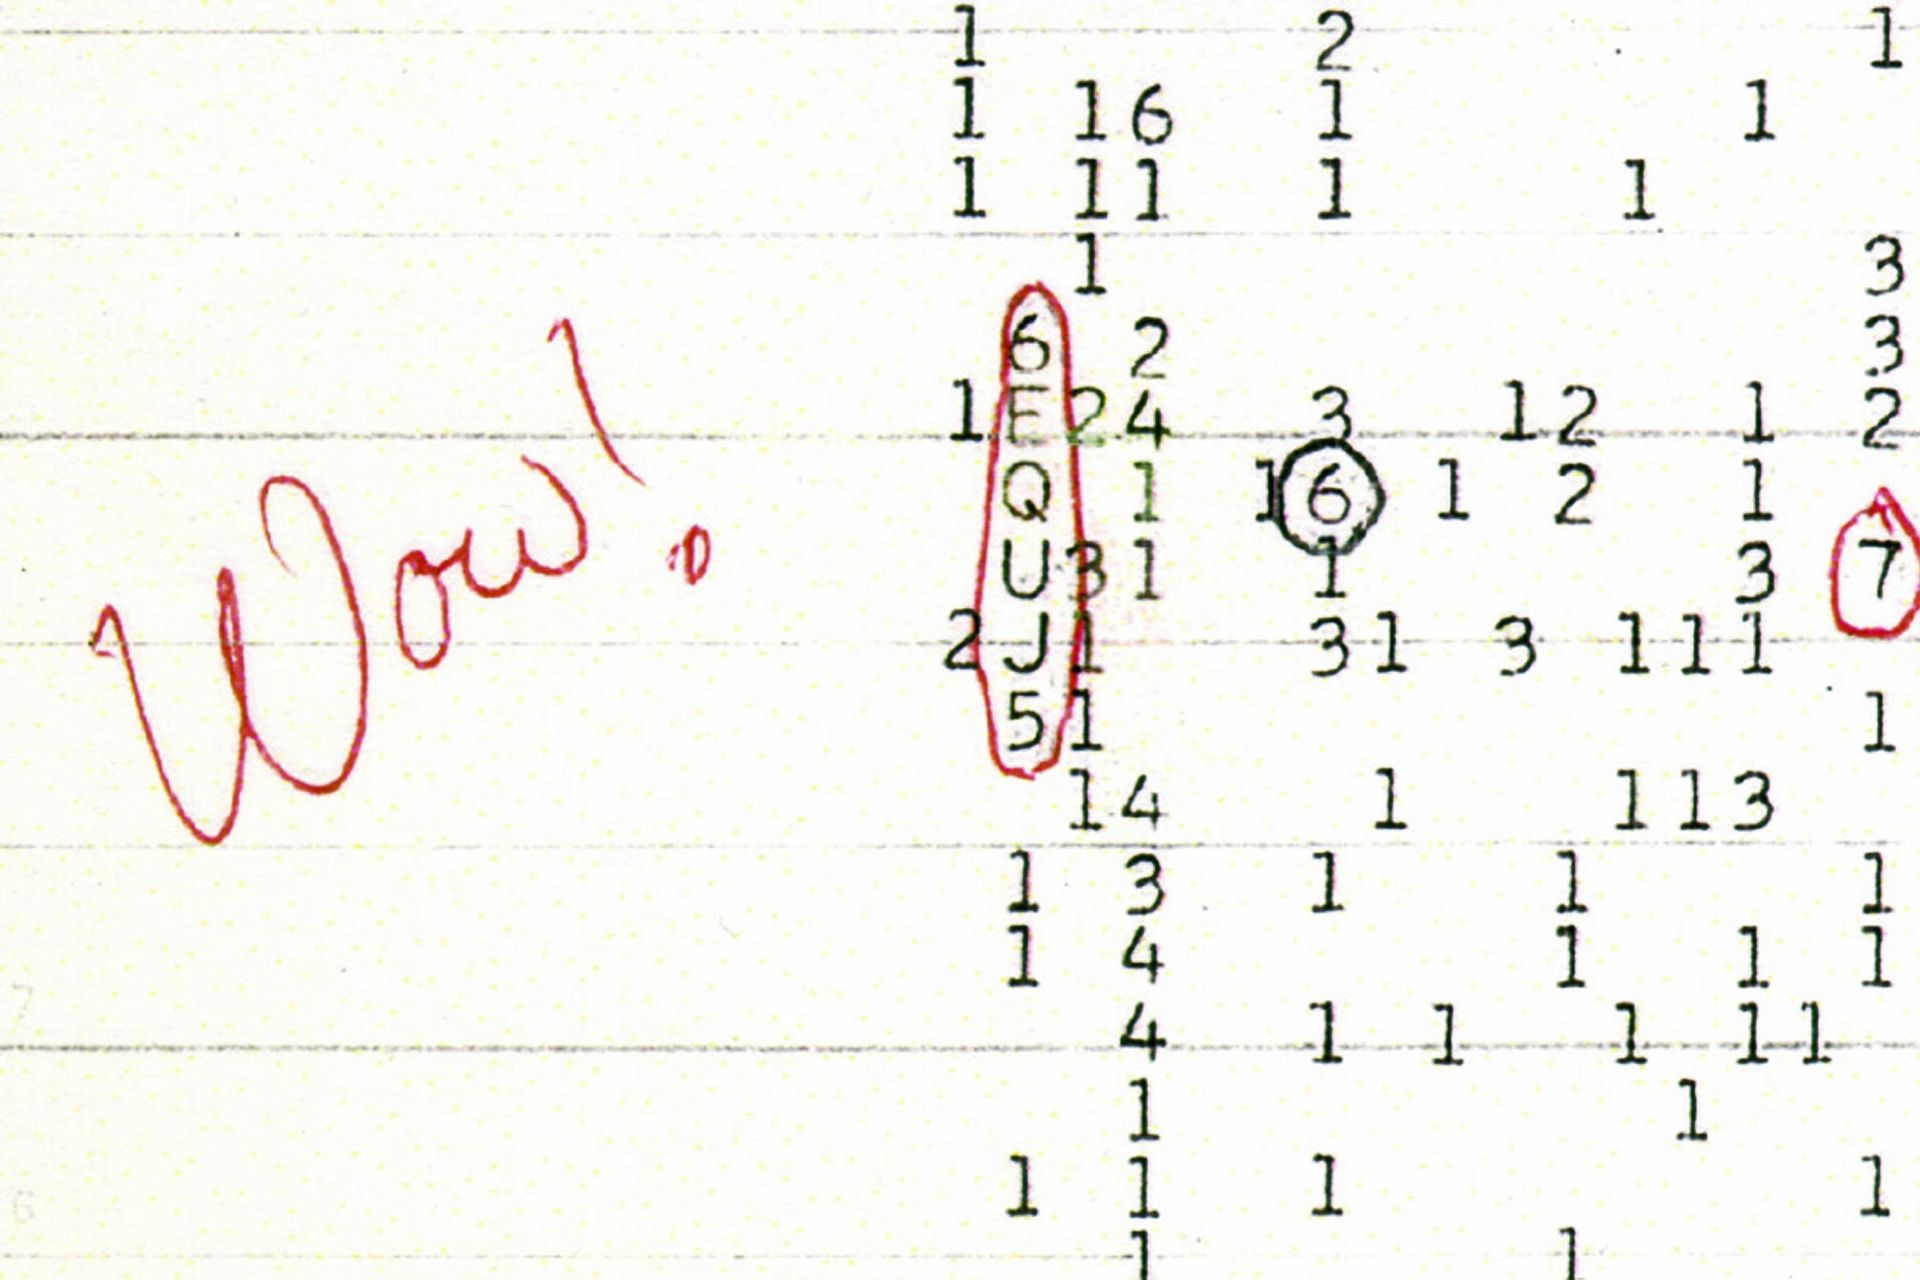 1 2 1
1 16 1 1
1 11 1 1
1 3
6 2 3
1E24 3 12 1 2
Q 1 16 1 2 1
U31 1 3 7
2J1 31 3 111
51 1
14 1 113
1 3 1 1 1
1 4 1 1 1
4 1 1 1 11
1 1
1 1 1 1
1 1
Wow!